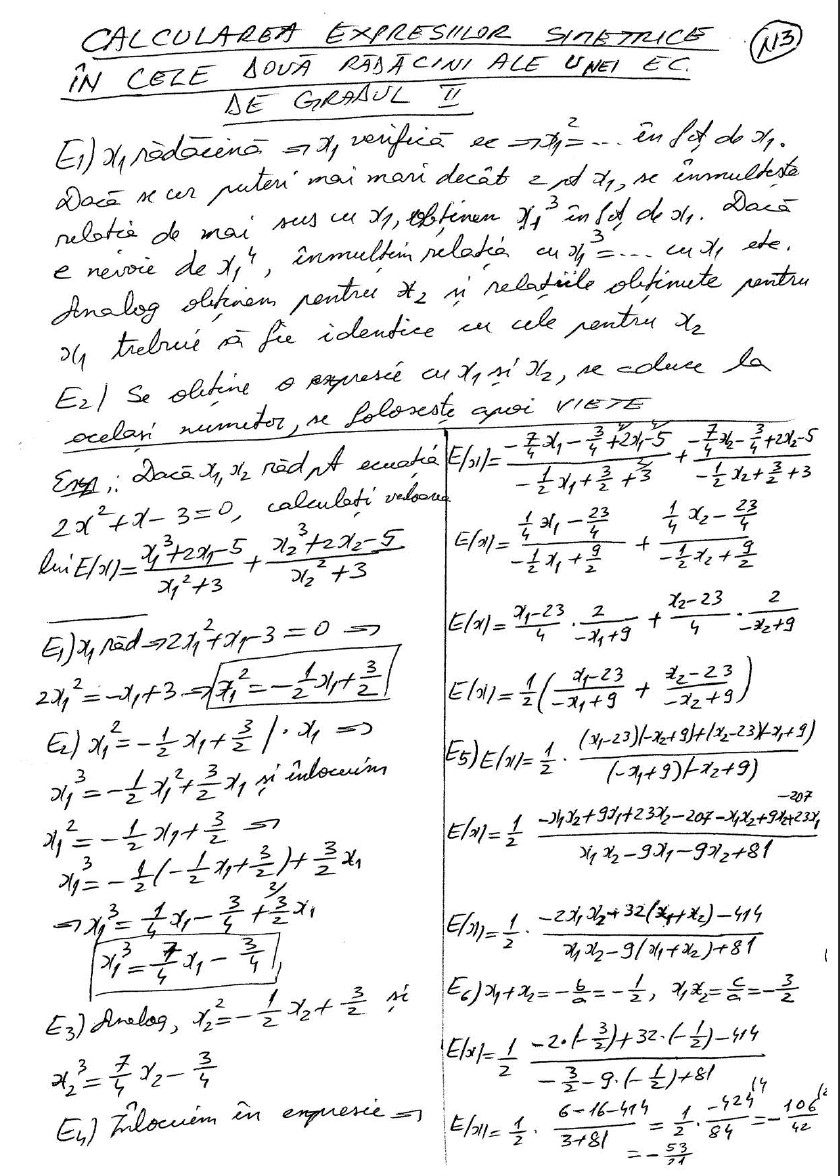 CALCULAREA EXPRESIILOR SIMETRICE
N3
ÎN CELE DOUĂ RĂDĂCINI ALE UNEI EC.
DE GRADUL II
E1) x₁ rădăcină ⇒ x₁ verifică ec ⇒ x₁² = ... în fcț de x₁.
Dacă se cer puteri mai mari decât 2 pt x₁, se înmulțește
relația de mai sus cu x₁, obținem x₁³ în fcț de x₁. Dacă
e nevoie de x₁⁴, înmulțim relația cu x₁³ = .... cu x₁ etc.
Analog obținem pentru x₂ și relațiile obținute pentru
x₁ trebuie să fie identice cu cele pentru x₂
E2) Se obține o expresie cu x₁ și x₂, se aduce la
același numitor, se folosește apoi VIETE
Exp.: Dacă x₁, x₂ răd pt ecuația
2x² + x - 3 = 0, calculați valoarea
lui E(x) = (x₁³ + 2x₁ - 5)/(x₁² + 3) + (x₂³ + 2x₂ - 5)/(x₂² + 3)
E1) x₁ răd ⇒ 2x₁² + x₁ - 3 = 0 ⇒
2x₁² = -x₁ + 3 ⇒ x₁² = -1/2 x₁ + 3/2
E2) x₁² = -1/2 x₁ + 3/2 | · x₁ ⇒
x₁³ = -1/2 x₁² + 3/2 x₁ și înlocuim
x₁² = -1/2 x₁ + 3/2 ⇒
x₁³ = -1/2 (-1/2 x₁ + 3/2) + 3/2 x₁
⇒ x₁³ = 1/4 x₁ - 3/4 + ²⁾3/2 x₁
x₁³ = 7/4 x₁ - 3/4
E3) Analog, x₂² = -1/2 x₂ + 3/2 și
x₂³ = 7/4 x₂ - 3/4
E4) Înlocuim în expresie ⇒
E(x) = (-7/4 x₁ - 3/4 + ⁴⁾2x₁ - ⁴⁾5)/(-1/2 x₁ + 3/2 + ²⁾3) + (-7/4 x₂ - 3/4 + 2x₂ - 5)/(-1/2 x₂ + 3/2 + 3)
E(x) = (1/4 x₁ - 23/4)/(-1/2 x₁ + 9/2) + (1/4 x₂ - 23/4)/(-1/2 x₂ + 9/2)
E(x) = (x₁ - 23)/4 · 2/(-x₁ + 9) + (x₂ - 23)/4 · 2/(-x₂ + 9)
E(x) = 1/2 ((x₁ - 23)/(-x₁ + 9) + (x₂ - 23)/(-x₂ + 9))
E5) E(x) = 1/2 · ((x₁ - 23)(-x₂ + 9) + (x₂ - 23)(-x₁ + 9))/((-x₁ + 9)(-x₂ + 9))
E(x) = 1/2 (-x₁x₂ + 9x₁ + 23x₂ - 207 - x₁x₂ + 9x₂ + 23x₁ - 207)/(x₁x₂ - 9x₁ - 9x₂ + 81)
E(x) = 1/2 · (-2x₁x₂ + 32(x₁ + x₂) - 414)/(x₁x₂ - 9(x₁ + x₂) + 81)
E6) x₁ + x₂ = -b/a = -1/2, x₁x₂ = c/a = -3/2
E(x) = 1/2 (-2·(-3/2) + 32·(-1/2) - 414)/(-3/2 - 9·(-1/2) + 81)
E(x) = 1/2 · (6 - 16 - 414)/(3 + 81) = 1/2 · -424/84 ⁽⁴ = -106/42 ⁽²
= -53/21